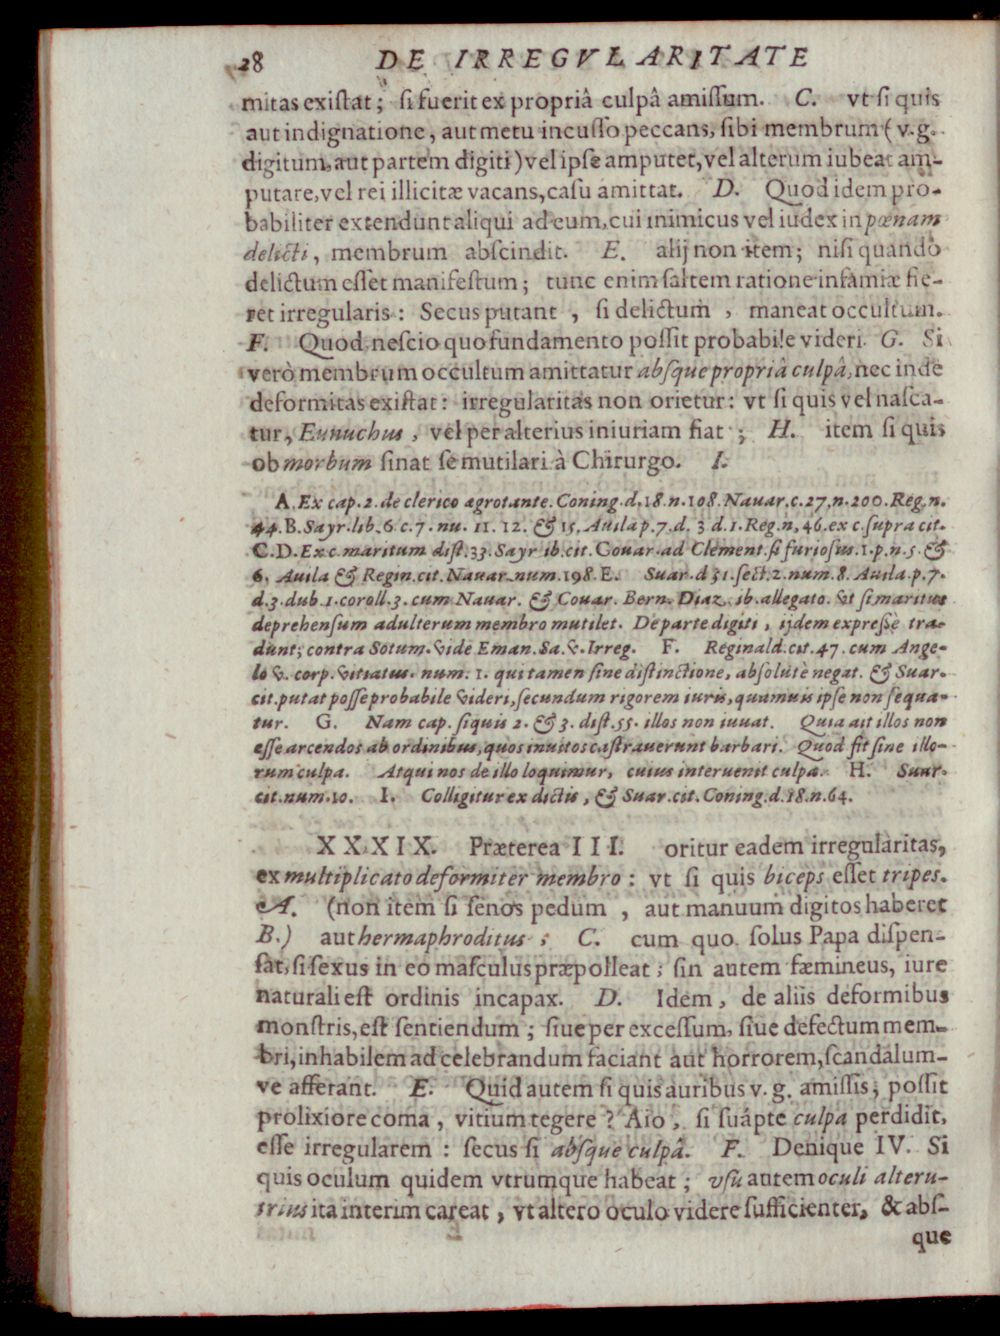 28 DE IRREGVLARITATE
mitas existat; si fuerit ex propriâ culpâ amissum. C. vt si quis
aut indignatione, aut metu incusso peccans, sibi membrum (v.g.
digitum, aut partem digiti) vel ipse amputet, vel alterum iubeat am-
putare, vel rei illicitæ vacans, casu amittat. D. Quod idem pro-
babiliter extendunt aliqui ad eum, cui inimicus vel iudex in pœnam
delicti, membrum abscindit. E. alij non item; nisi quando
delictum esset manifestum; tunc enim saltem ratione infamiæ fie-
ret irregularis: Secus putant, si delictum, maneat occultum.
F. Quod nescio quo fundamento possit probabile videri. G. Si
verò membrum occultum amittatur absque propriâ culpâ, nec inde
deformitas existat: irregularitas non orietur: vt si quis vel nasca-
tur, Eunuchus, vel per alterius iniuriam fiat; H. item si quis
ob morbum sinat se mutilari à Chirurgo. I.
A. Ex cap. 2. de clerico ægrotante. Coning. d. 18. n. 108. Nauar. c. 27. n. 200. Reg. n.
44. B. Sayr. lib. 6 c. 7. nu. 11. 12. & 15. Auila p. 7. d. 3 d. 1. Reg. n. 46. ex c. supra cit.
C. D. Ex c. maritum dist. 33. Sayr ib. cit. Couar. ad Clement. si furiosus. 1. p. n. 5. &
6. Auila & Regin. cit. Nauar. num. 198. E. Suar. d 51. sect. 2. num. 8. Auila. p. 7.
d. 3. dub. 1. coroll. 3. cum Nauar. & Couar. Bern. Diaz. ib. allegato. vt si maritus
deprehensum adulterum membro mutilet. De parte digiti, ijdem expresse tra-
dunt; contra Sotum. vide Eman. Sa. v. Irreg. F. Reginald. cit. 47. cum Ange-
lo v. corp. vitiatus. num. 1. qui tamen sine distinctione, absolutè negat. & Suar.
cit. putat posse probabile videri, secundum rigorem iuris, quamuis ipse non sequa-
tur. G. Nam cap. siquis 2. & 3. dist. 55. illos non iuuat. Quia ait illos non
esse arcendos ab ordinibus, quos inuitos castrauerunt barbari. Quod fit sine illo-
rum culpa. Atqui nos de illo loquimur, cuius interuenit culpa. H. Suar.
cit. num. 10. I. Colligitur ex dictis, & Suar. cit. Coning. d. 18. n. 64.
XXXIX. Præterea III. oritur eadem irregularitas,
ex multiplicato deformiter membro: vt si quis biceps esset tripes.
A. (non item si senos pedum, aut manuum digitos haberet
B.) aut hermaphroditus; C. cum quo solus Papa dispen-
sat, si sexus in eo masculus præpolleat; sin autem fæmineus, iure
naturali est ordinis incapax. D. Idem, de aliis deformibus
monstris, est sentiendum; siue per excessum, siue defectum mem-
bri, inhabilem ad celebrandum faciant aut horrorem, scandalum-
ve afferant. E. Quid autem si quis auribus v. g. amissis, possit
prolixiore coma, vitium tegere? Aio, si suápte culpa perdidit,
esse irregularem: secus si absque culpâ. F. Denique IV. Si
quis oculum quidem vtrumque habeat; vsu autem oculi alteru-
trius ita interim careat, vt altero oculo videre sufficienter, & abs-
que